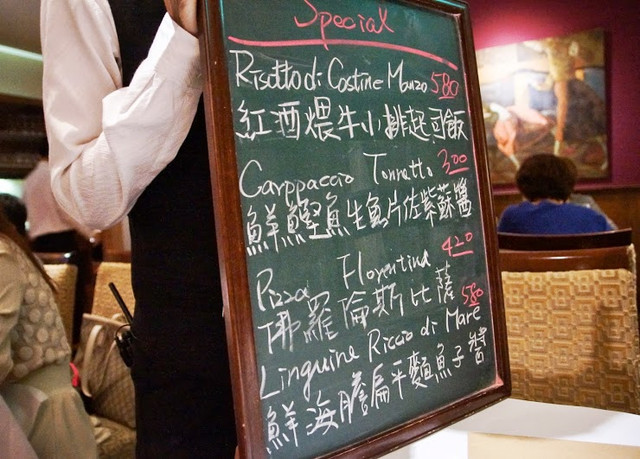 Special
Risotto di Costine Manzo 580
紅酒煨牛小排起司飯
Carppaccio Tonnetto 300
鮮鰹魚生魚片佐紫蘇醬
Pizza Florentina 420
佛羅倫斯比薩
Linguine Riccio di Mare 580
鮮海膽扁平麵魚子醬